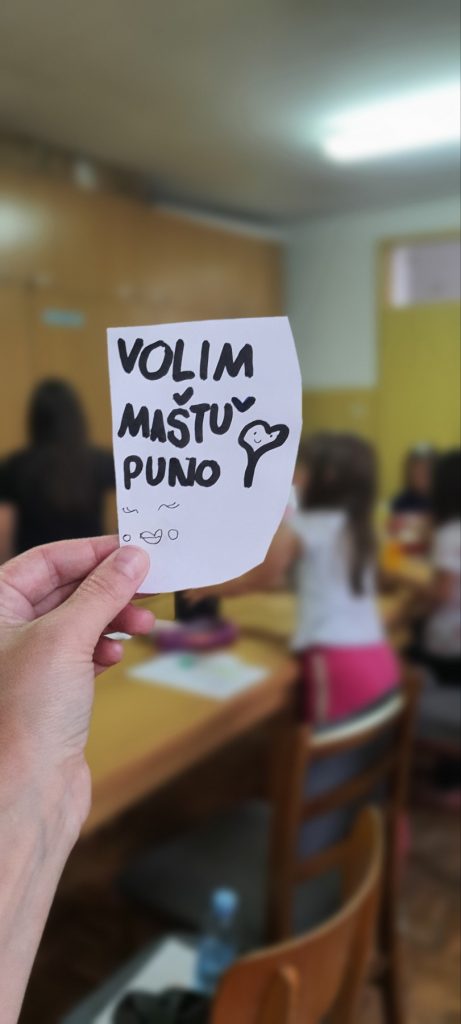 VOLIM
MAŠTU
PUNO